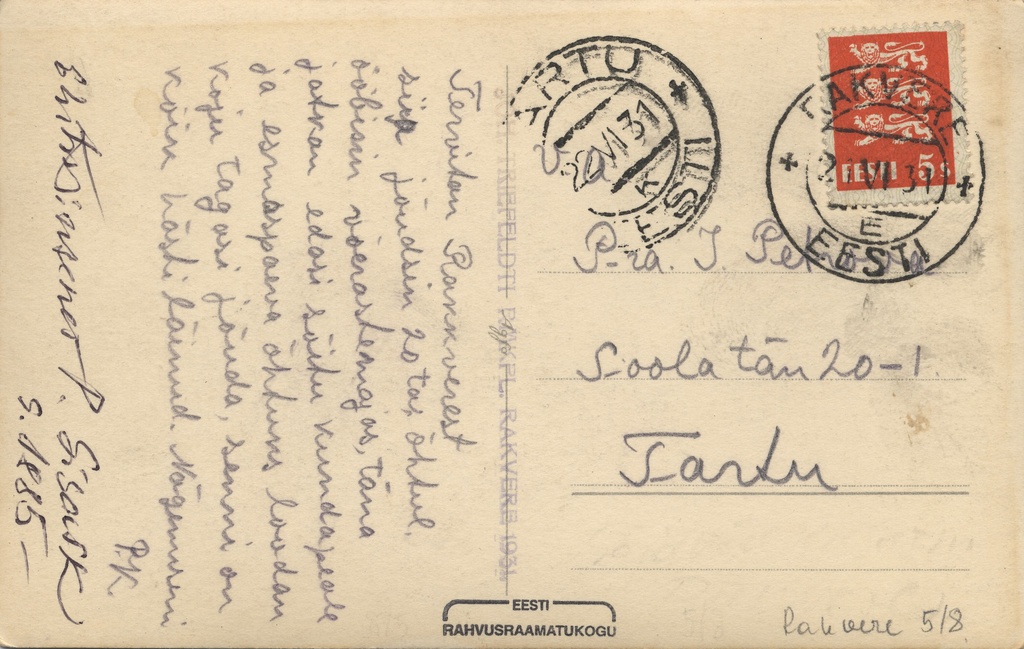 Tervitan Rakkverest
siia jõudsin 20 ta, õhtul.
ööbisin võerastemajas, täna
jatkan edasi sõitu kundapeale
ja esmaspaeva õhtuks loodan
koju tagasi jõuda, senni on
kõik hästi läinud. Nägemiseni
P.K
Ehitusinsener P.
s. 1885 –
TARTU
EESTI
22 VI 31
K
RAKVERE
VI 31
E
EESTI
EESTI 5 S
Pr-a. J.
Soola tän 20-1.
Tartu
RAKVERE 1931.
EESTI
RAHVUSRAAMATUKOGU
Rakvere 5/8